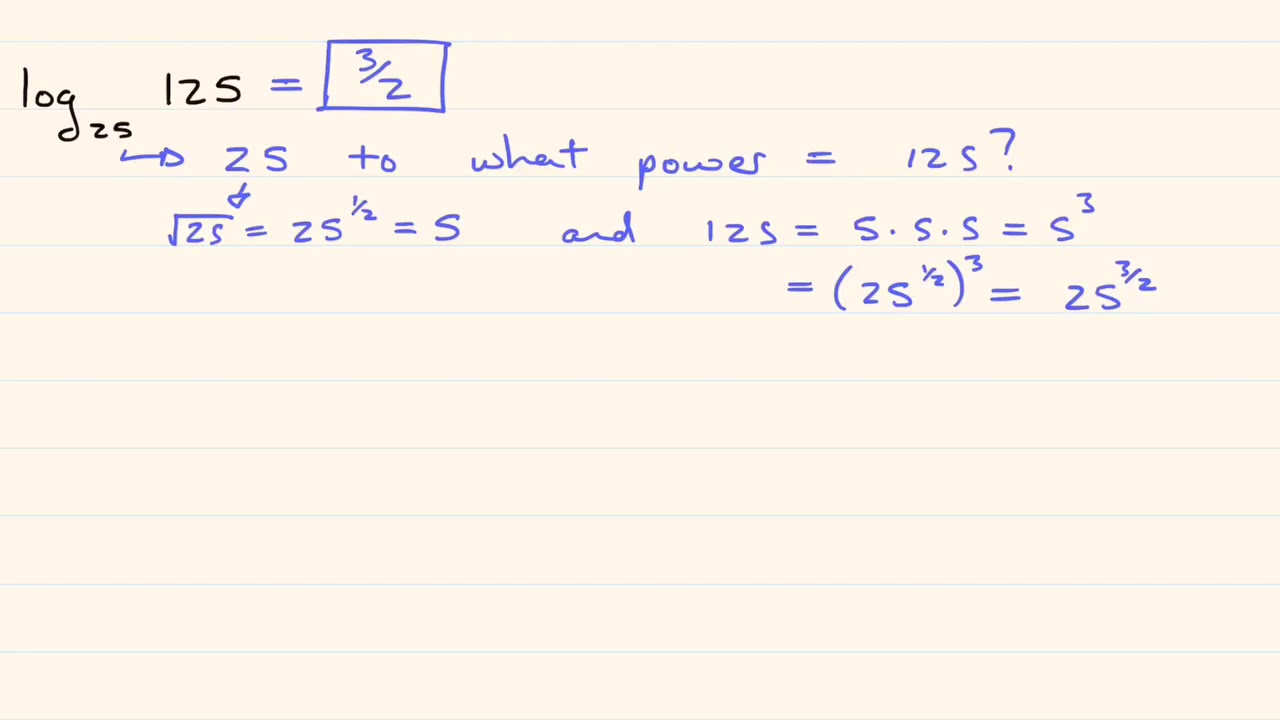 log₂₅ 125 = 3/2
↳ 25 to what power = 125?
√25 = 25^(1/2) = 5 and 125 = 5 · 5 · 5 = 5³
= (25^(1/2))³ = 25^(3/2)